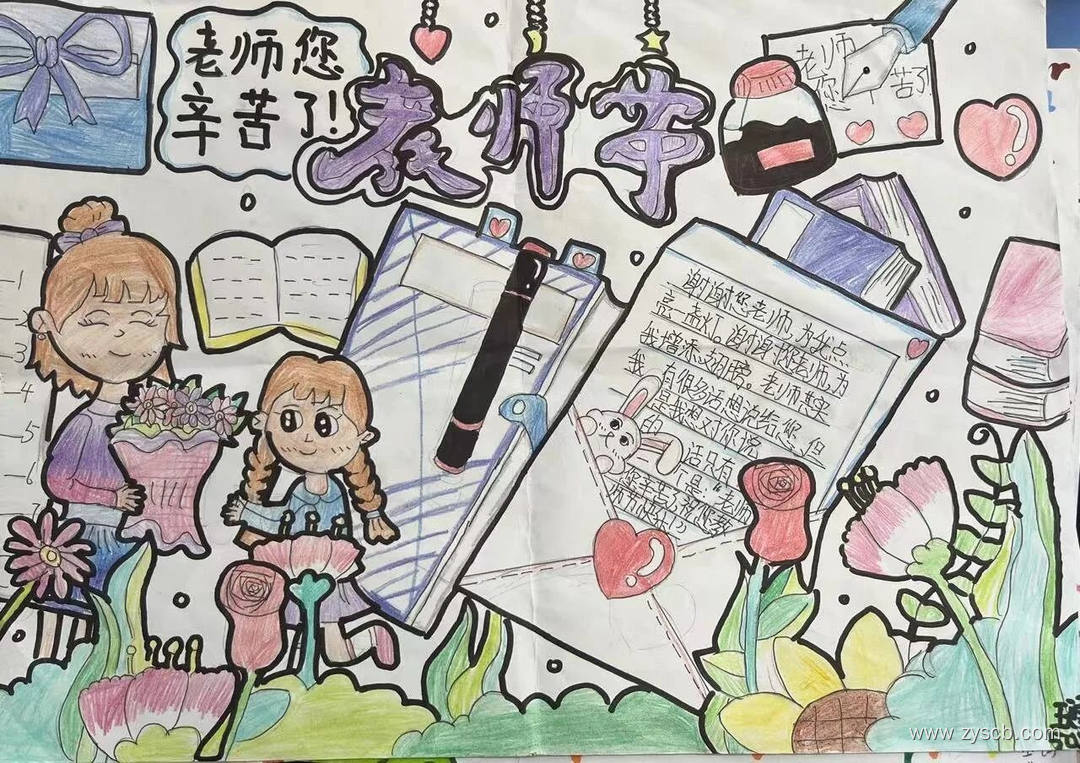 老师您
辛苦了!
教师节
老师
您 苦了
谢谢您老师,为我点
亮一盏灯。谢谢您老师,为
我增添翅膀。老师其实
我有很多话想说给您,但
是我想对你说
的 话只有
个是,老师
您辛苦了祝您教
师节快乐!
1
2
3
4
5
6
7
www.zyscb.com